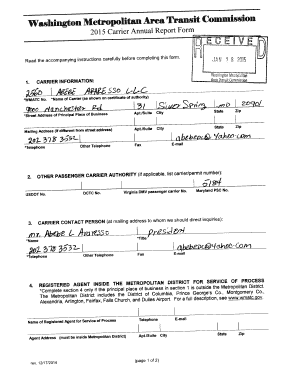 Washington Metropolitan Area Transit Commission
2015 Carrier Annual Report Form
RECEIVED
Read the accompanying instructions carefully before completing this form.
JAN 18 2015
Washington Metropolitan
Area Transit Commission
1. CARRIER INFORMATION:
2560 ABEBE ARARESSO LLC
*WMATC No. *Name of Carrier (as shown on certificate of authority)
Manchester Rd 31 Silver Spring MD 20901
*Street Address of Principal Place of Business Apt./Suite City State Zip
Mailing Address (if different from street address) Apt./Suite City State Zip
202 378 3532 @yahoo.com
*Telephone Other Telephone Fax E-mail
2. OTHER PASSENGER CARRIER AUTHORITY (if applicable, list carrier/permit number):
5184
USDOT No. DCTC No. Virginia DMV passenger carrier No. Maryland PSC No.
3. CARRIER CONTACT PERSON (at mailing address to whom we should direct inquiries):
Mr. Abebe L Araresso president
*Name *Title
202 378 3532 @yahoo.com
*Telephone Other Telephone Fax E-mail
4. REGISTERED AGENT INSIDE THE METROPOLITAN DISTRICT FOR SERVICE OF PROCESS
*Complete section 4 only if the principal place of business in section 1 is outside the Metropolitan District.
The Metropolitan District includes the District of Columbia, Prince George's Co., Montgomery Co.,
Alexandria, Arlington, Fairfax, Falls Church, and Dulles Airport. For a full description, see www.wmatc.gov.
Name of Registered Agent for Service of Process Telephone E-mail
Agent Address (must be inside Metropolitan District) Apt./Suite City State Zip
(page 1 of 2)
rev. 12/17/2014